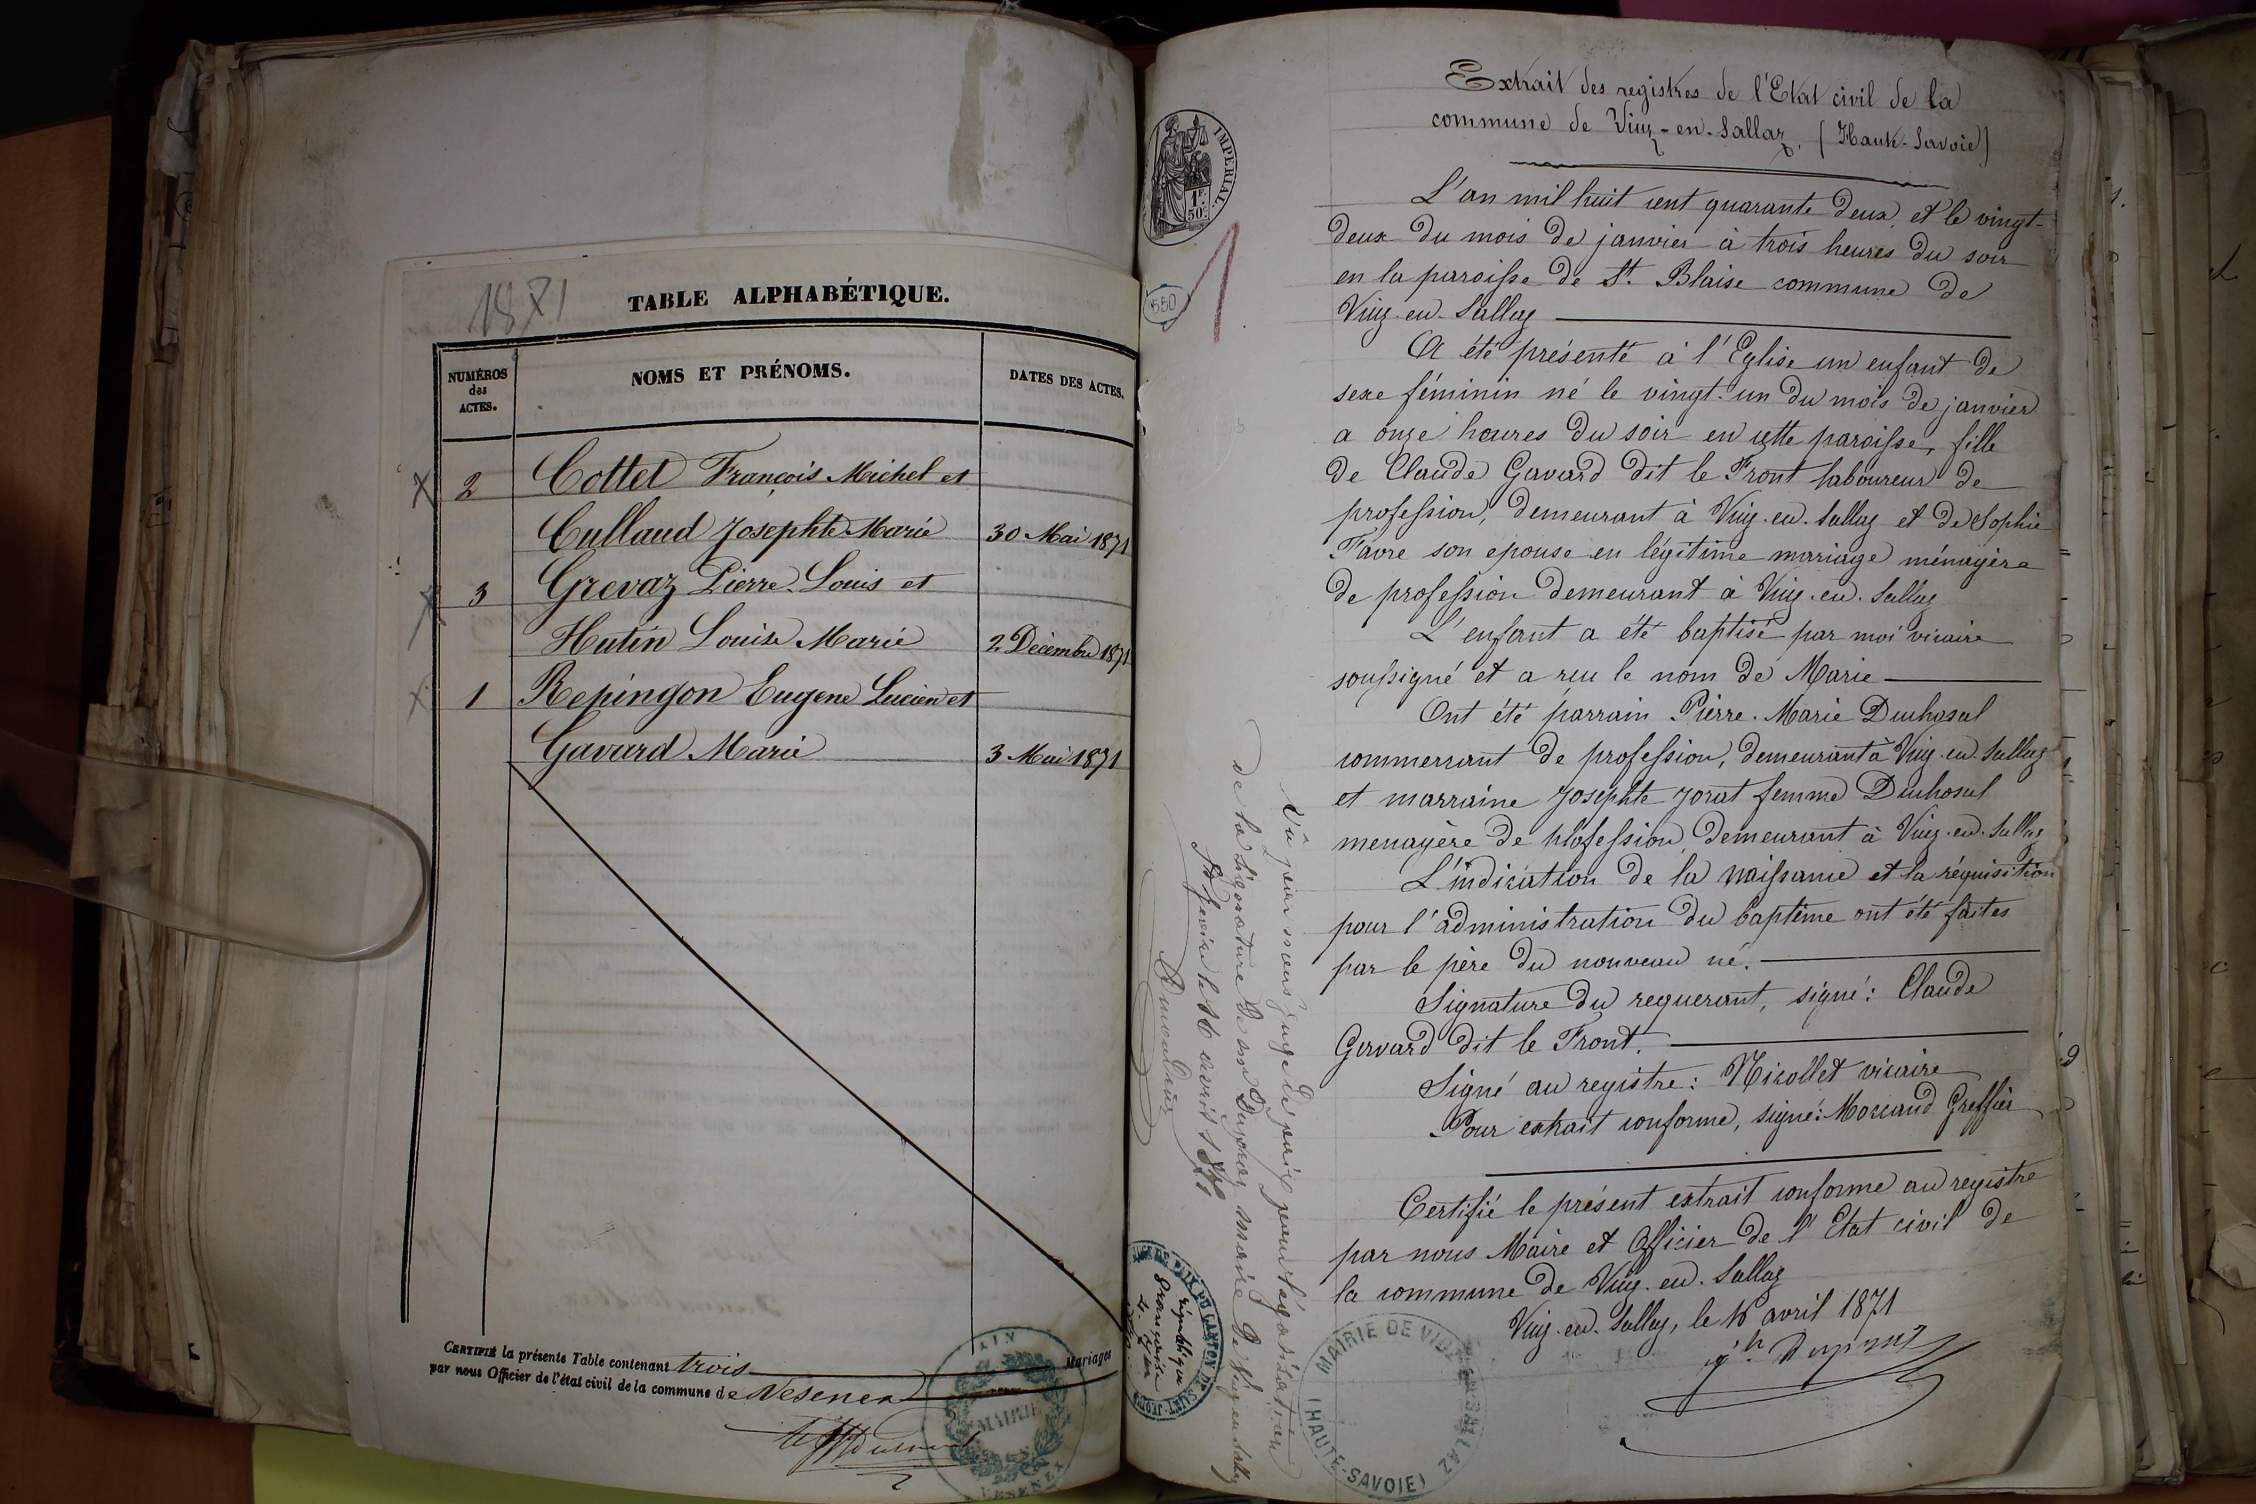 1871
TABLE ALPHABÉTIQUE.
NUMÉROS
des
ACTES.
NOMS ET PRÉNOMS.
DATES DES ACTES.
2 Cottet François Michel et
Cullaud Josephte Marie 30 Mai 1871
3 Grevaz Pierre-Louis et
Hutin Louise Marie 2 Décembre 1871
1 Repingon Eugene Lucien et
Gavard Marie 3 Mai 1871
CERTIFIÉ la présente Table contenant trois Mariages
par nous Officier de l'état civil de la commune de Nesenex
MAIRIE
IMPÉRIAL.
1F.
50C.
550
1
Extrait des registres de l'Etat civil de la
commune de Viuz-en-Sallaz, (Haute-Savoie)
L'an mil huit cent quarante deux et le vingt-
deux du mois de janvier à trois heures du soir
en la paroisse de St. Blaise commune de
Viuz-en-Sallaz
A été présenté à l'Eglise un enfant de
sexe féminin né le vingt-un du mois de janvier
a onze heures du soir en cette paroisse, fille
de Claude Gavard dit le Front laboureur de
profession, demeurant à Viuz-en-Sallaz et de Sophie
Favre son epouse en légitime mariage ménagère
de profession demeurant à Viuz-en-Sallaz
L'enfant a été baptisé par moi vicaire
soussigné et a reçu le nom de Marie
Ont été parrain Pierre-Marie Duchosal
commercant de profession, demeurant à Viuz-en-Sallaz
et marraine Josephte Jorat femme Duchosal
menagère de profession, demeurant à Viuz-en-Sallaz
L'indication de la naissance et la réquisition
pour l'administration du baptême ont été faites
par le père du nouveau né.
Signature du requerant, signé: Claude
Gavard dit le Front.
Signé au registre: Nicollet vicaire
Pour extrait conforme, signé: Moccand Greffier
Certifié le présent extrait conforme au registre
par nous Maire et Officier de l'Etat civil de
la commune de Viuz-en-Sallaz
Viuz-en-Sallaz, le 16 avril 1871
MAIRIE DE VIUZ-EN-SALLAZ
(HAUTE-SAVOIE)
Vû par nous juge de paix pour légalisation
de la signature de mr Dupraz, maire de Viuz en Sallaz
St Jeoire le 16 avril 1871
JUSTICE DE PAIX DU CANTON DE SAINT-JEOIRE
République
française